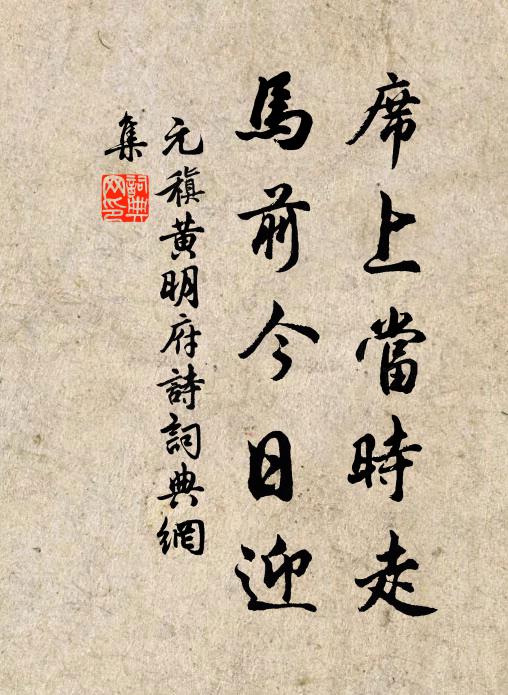 席上當時走
馬前今日迎
元稹黃明府詩詞典網
集
詞典网印